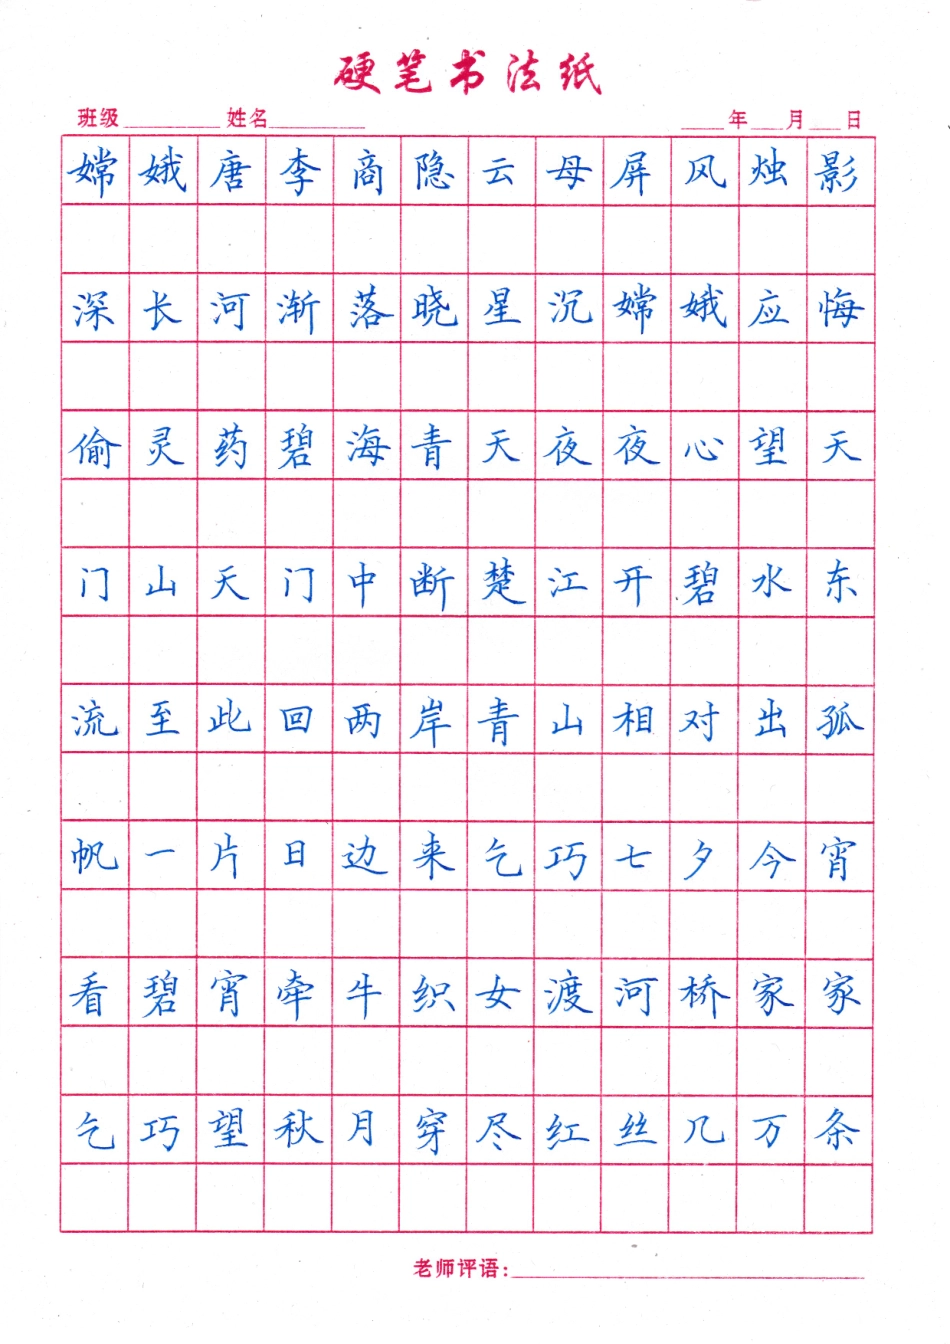 硬笔书法纸
班级 姓名 年 月 日
嫦娥唐李商隐云母屏风烛影
深长河渐落晓星沉嫦娥应悔
偷灵药碧海青天夜夜心望天
门山天门中断楚江开碧水东
流至此回两岸青山相对出孤
帆一片日边来乞巧七夕今宵
看碧宵牵牛织女渡河桥家家
乞巧望秋月穿尽红丝几万条
老师评语：